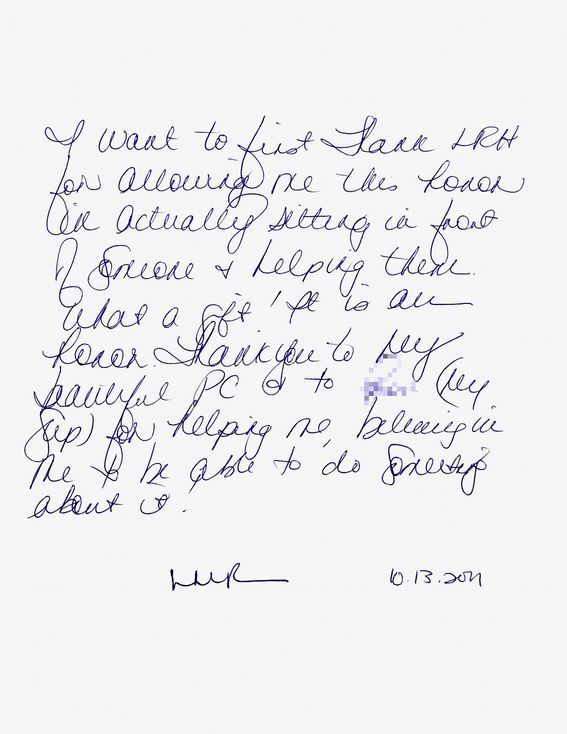 I want to first thank LRH
for allowing me this honor
in actually sitting in front
of someone & helping them.
What a gift! It is an
honor. Thank you to my
beautiful PC & to (my
sup) for helping me, believing in
me to be able to do something
about it.
10.13.2011